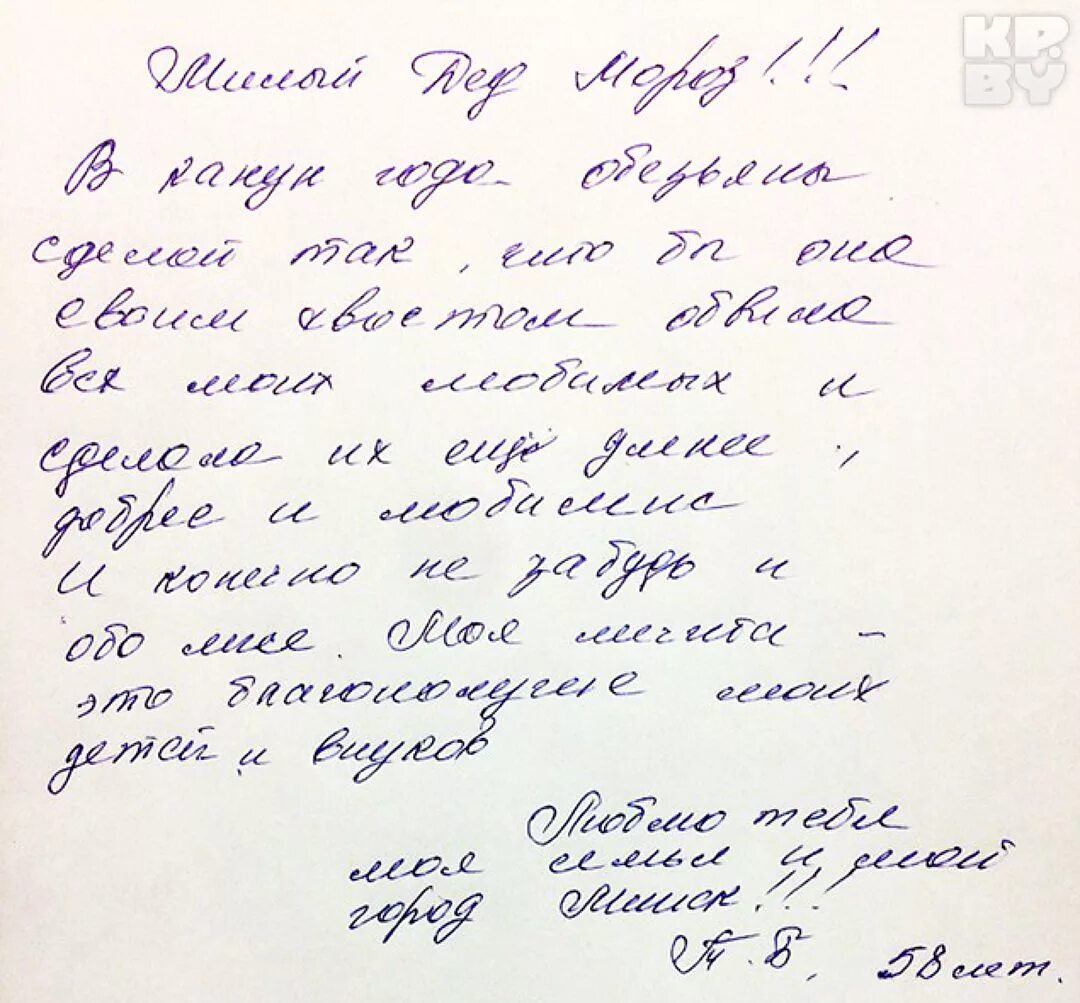 KP.
BY
Милый Дед Мороз!!!
В канун года обезьяны
сделай так, что бы она
своим хвостом обвила
всех моих любимых и
сделала их ещё умнее,
добрее и любимис
И конечно не забудь и
обо мне. Моя мечта -
это благополучие моих
детей и внуков
Люблю тебя
моя семья и мой
город Минск!!!
Т.Б, 58 лет.